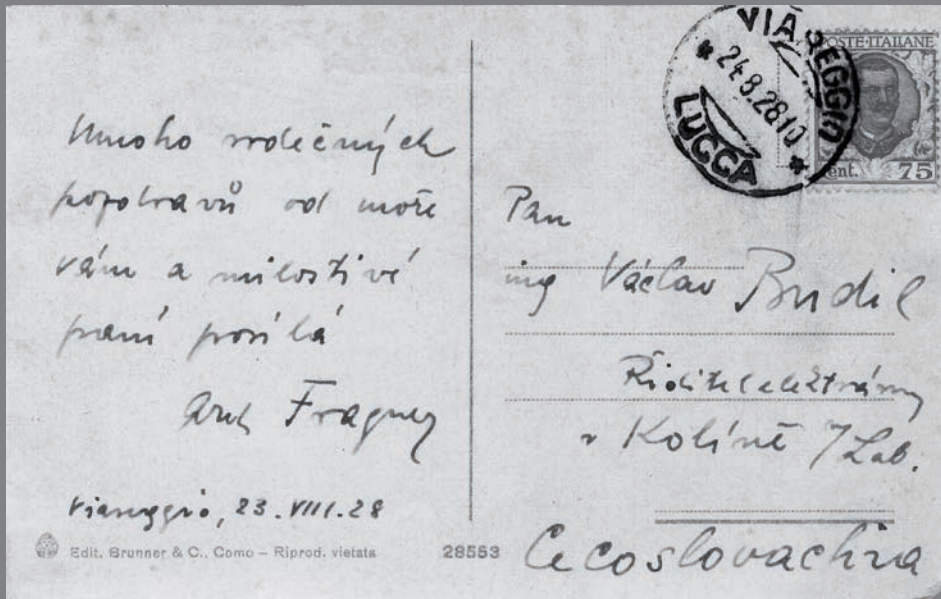 Mnoho srdečných
pozdravů od moře
vám a milostivé
paní posílá
Arch Fragner
Viareggio, 23.VIII.28
Edit. Brunner & C., Como – Riprod. vietata
28553
VIAREGGIO
24.8.28 10
LUCCA
POSTE·ITALIANE
Cent. 75
Pan
ing Václav Budil
Ředitel elektrárny
v Kolíně /Lab.
Cecoslovachia